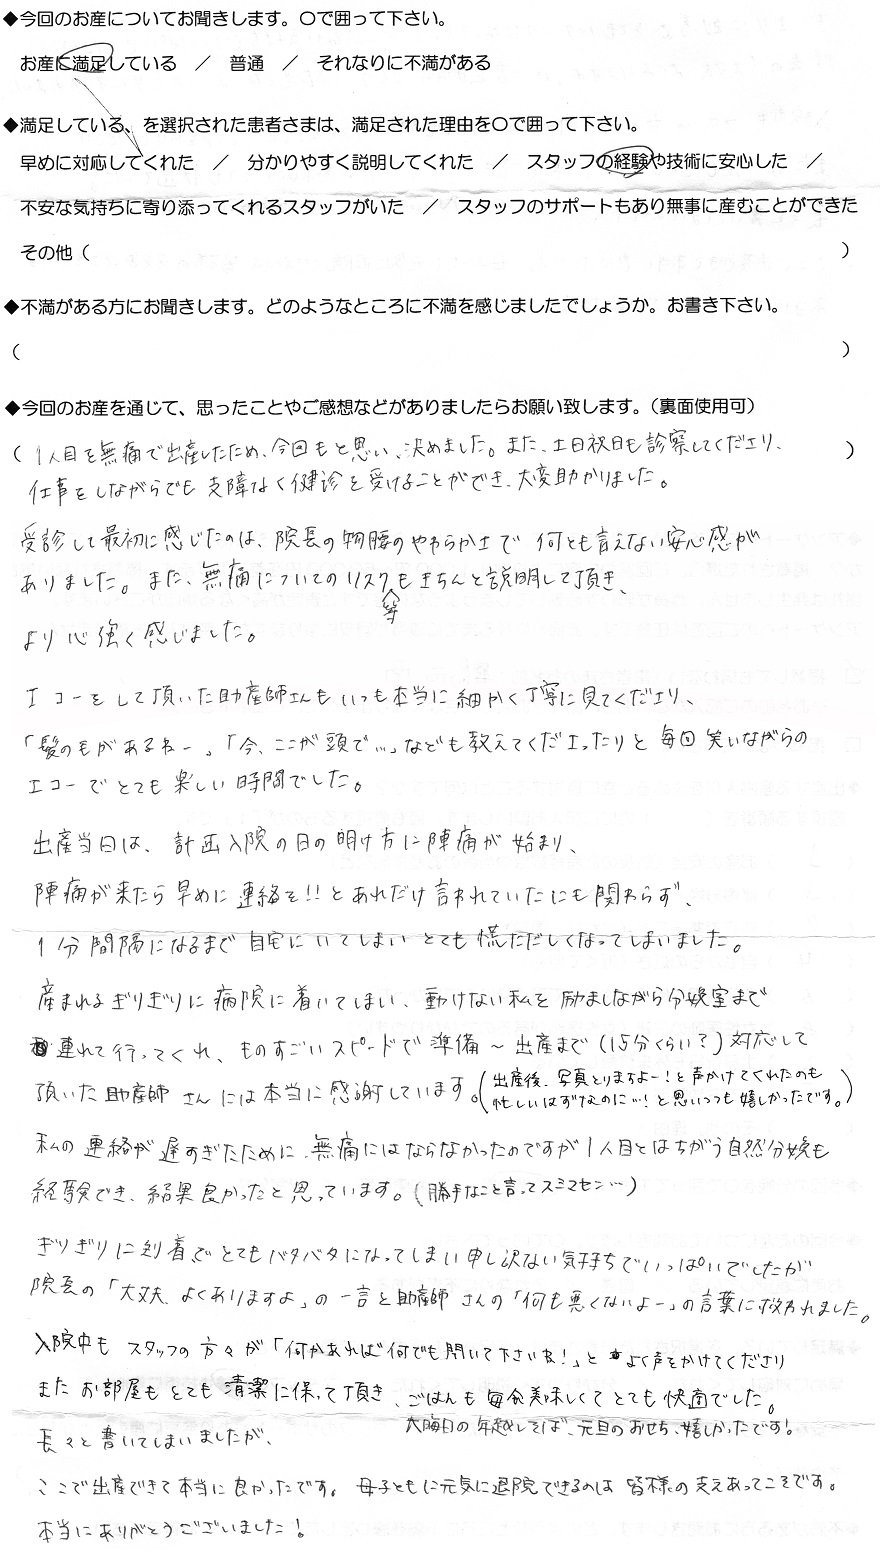 ◆今回のお産についてお聞きします。〇で囲って下さい。
お産に満足している　／　普通　／　それなりに不満がある
◆満足している、を選択された患者さまは、満足された理由を〇で囲って下さい。
早めに対応してくれた　／　分かりやすく説明してくれた　／　スタッフの経験や技術に安心した　／
不安な気持ちに寄り添ってくれるスタッフがいた　／　スタッフのサポートもあり無事に産むことができた
その他（　　　）
◆不満がある方にお聞きします。どのようなところに不満を感じましたでしょうか。お書き下さい。
（　　　）
◆今回のお産を通じて、思ったことやご感想などがありましたらお願い致します。（裏面使用可）
（1人目を無痛で出産したため、今回もと思い、決めました。また、土日祝日も診察してくださり、　）
仕事をしながらでも支障なく健診を受けることができ、大変助かりました。
受診して最初に感じたのは、院長の物腰のやわらかさで 何とも言えない安心感が
ありました。また、無痛についてのリスク等もきちんと説明して頂き、
より心強く感じました。
エコーをして頂いた助産師さんもいつも本当に細かく丁寧に見てくださり、
「髪の毛があるねー」、「今、ここが頭で…」なども教えてくださったりと毎回笑いながらの
エコーでとても楽しい時間でした。
出産当日は、計画入院の日の明け方に陣痛が始まり、
陣痛が来たら早めに連絡を!!とあれだけ言われていたにも関わらず、
1分間隔になるまで自宅にいてしまいとても慌ただしくなってしまいました。
産まれるぎりぎりに病院に着いてしまい、動けない私を励ましながら分娩室まで
連れて行ってくれ、ものすごいスピードで準備〜出産まで（15分くらい？）対応して
頂いた助産師さんには本当に感謝しています。（出産後、写真とりますよー！と声かけてくれたのも
忙しいはずなのに…！と思いつつも嬉しかったです。）
私の連絡が遅すぎたために、無痛にはならなかったのですが1人目とはちがう自然分娩も
経験でき、結果良かったと思っています。（勝手なこと言ってスミマセン…）
ぎりぎりに到着でとてもバタバタになってしまい申し訳ない気持ちでいっぱいでしたが
院長の「大丈夫、よくありますよ」の一言と助産師さんの「何も悪くないよー」の言葉に救われました。
入院中も スタッフの方々が「何かあれば何でも聞いて下さいね！」とよく声をかけてくださり
またお部屋もとても清潔に保って頂き、ごはんも毎食美味しくてとても快適でした。
大晦日の年越しそば、元旦のおせち、嬉しかったです！
長々と書いてしまいましたが、
ここで出産できて本当に良かったです。母子ともに元気に退院できるのは皆様の支えあってこそです。
本当にありがとうございました！